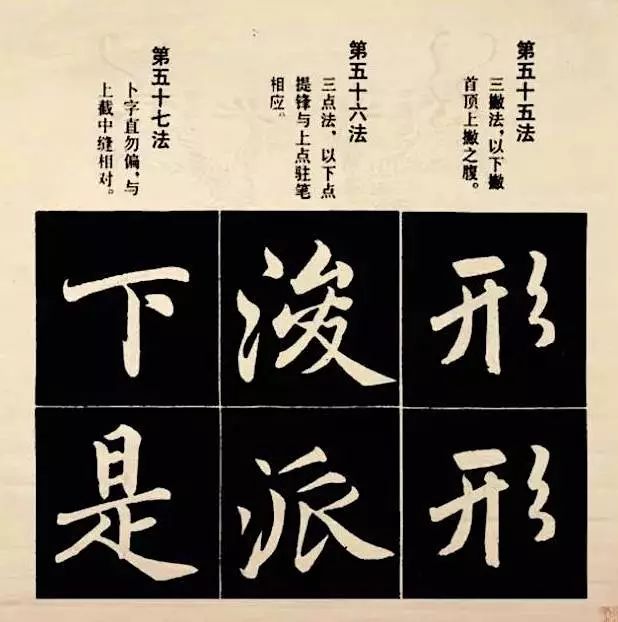 第五十五法
三撇法，以下撇
首顶上撇之腹。
第五十六法
三点法，以下点
提锋与上点驻笔
相应。
第五十七法
卜字直勿偏，与
上截中缝相对。
形
形
浚
派
下
是